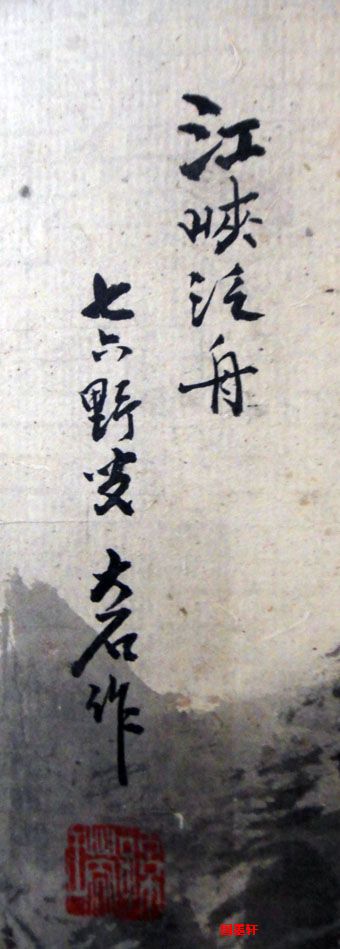 江峡泛舟
七六野叟 大石作
墨轩